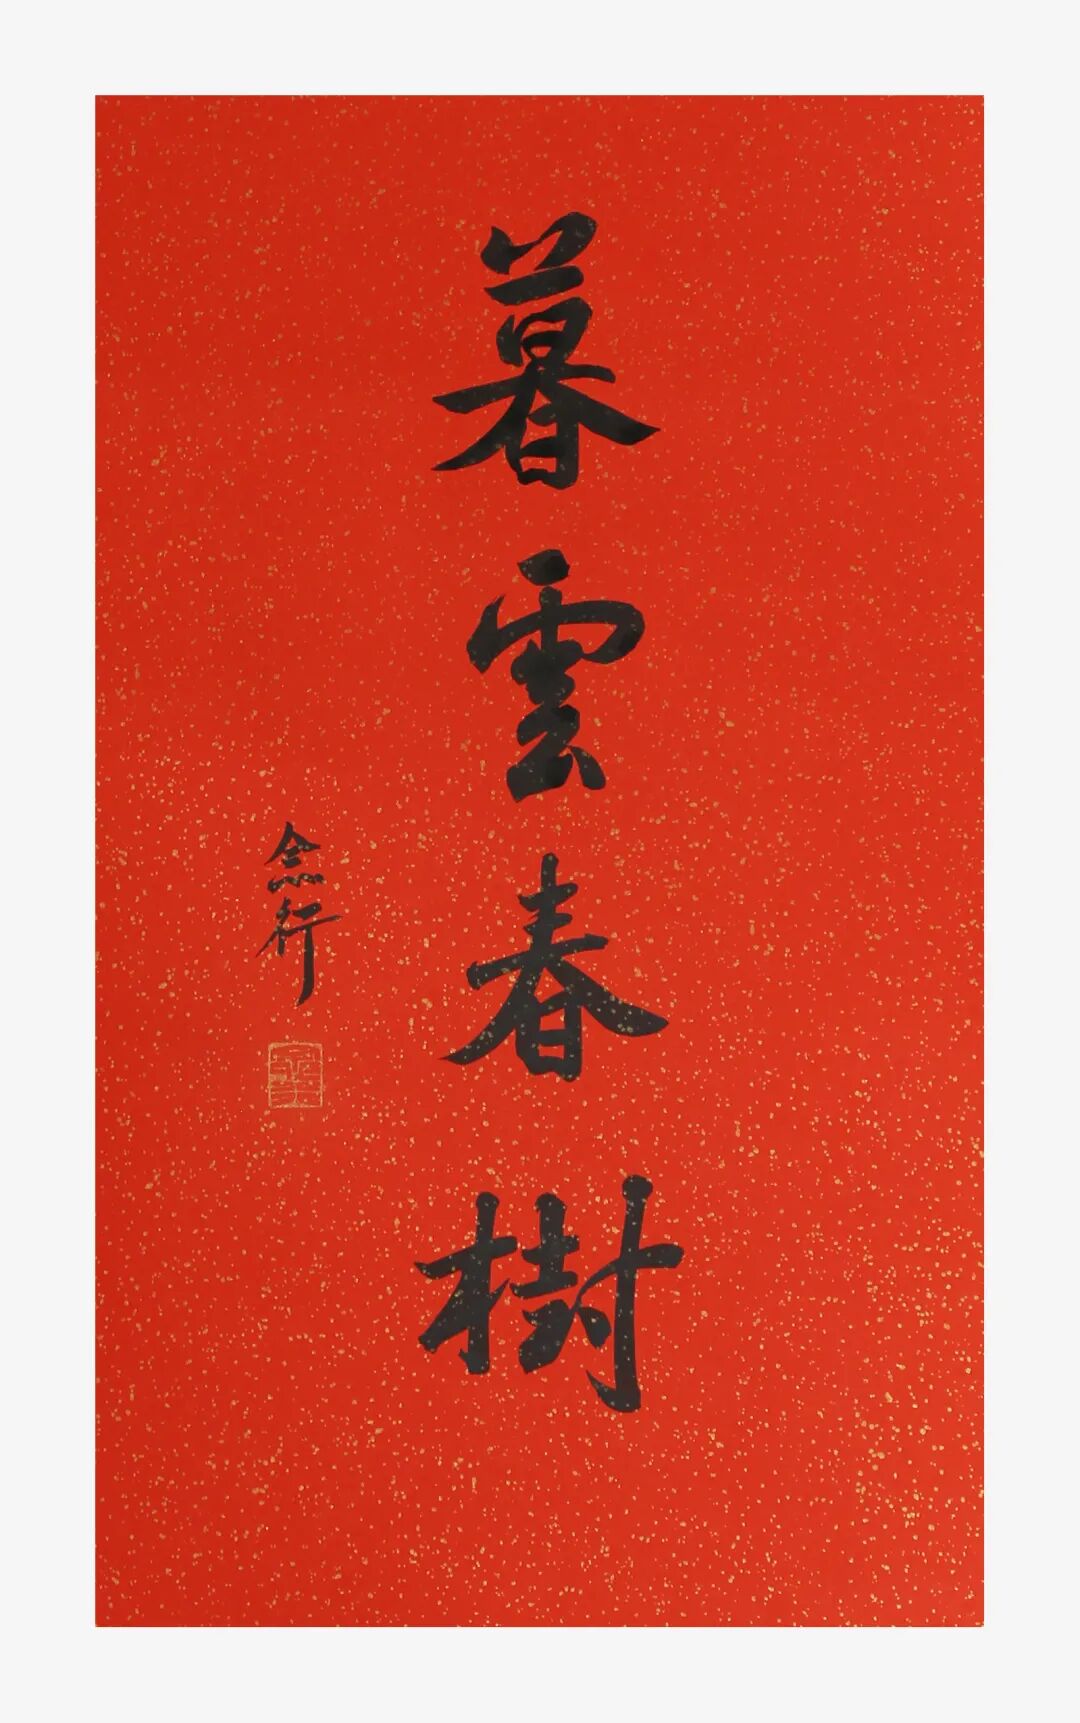 暮雲春樹
念行